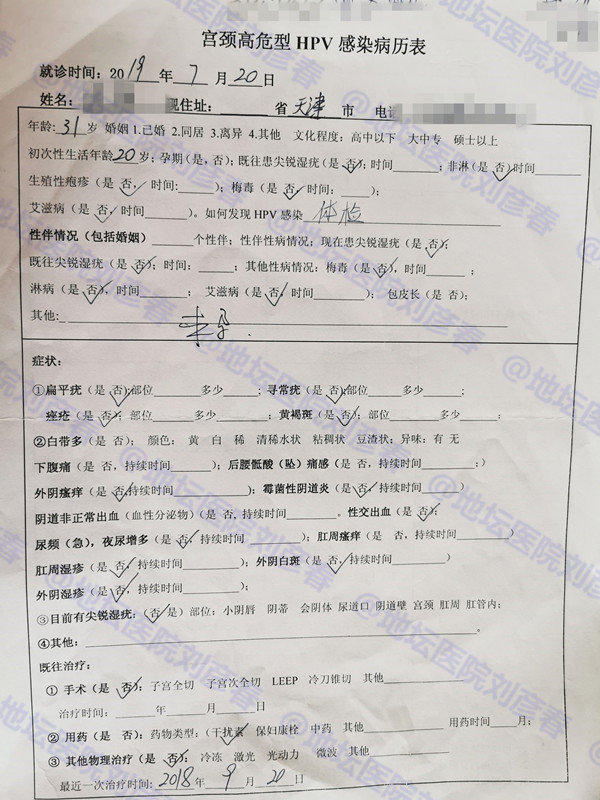 宫颈高危型 HPV 感染病历表
就诊时间：2019年7月20日
姓名： 现住址： 省天津市 电话
年龄：31岁 婚姻 1.已婚 2.同居 3.离异 4.其他 文化程度：高中以下 大中专 硕士以上
初次性生活年龄20岁；孕期（是，否）；既往患尖锐湿疣（是 否）；时间 ；非淋（是 否）时间
生殖性疱疹（是 否，时间： ）；梅毒（是 否）时间： ）；
艾滋病（是 否，时间 ）。如何发现 HPV 感染 体检
性伴情况（包括婚姻） 个性伴；性伴性病情况；现在患尖锐湿疣（是 否）；
既往尖锐湿疣（是 否）；时间： ；其他性病情况：梅毒（是 否），时间 ；
淋病（是 否），时间 ； 艾滋病（是 否，时间 ）； 包皮长（是 否）；
其他： 未孕.
症状：
①扁平疣（是 否）；部位 多少 ；寻常疣（是 否）；部位 多少 ；
痤疮（是 否）；部位 多少 ；黄褐斑（是 否）；部位 多少 ；
②白带多（是 否）； 颜色： 黄 白 稀 清稀水状 粘稠状 豆渣状；异味：有 无
下腹痛（是 否，持续时间 ）；后腰骶酸（坠）痛感（是 否，持续时间 ；）
外阴瘙痒（是 否，持续时间 ）；霉菌性阴道炎（是 否，持续时间 ）
阴道非正常出血（血性分泌物）（是 否, 持续时间 。性交出血（是 否）；
尿频（急），夜尿增多（是 否，持续时间 ）；肛周瘙痒（是 否，持续时间 ）
肛周湿疹（是 否，持续时间 ）；外阴白斑（是 否，持续时间 ）
外阴湿疹（是 否，持续时间 ）；
③目前有尖锐湿疣：（否 是）部位：小阴唇 阴蒂 会阴体 尿道口 阴道壁 宫颈 肛周 肛管内；
④其他： 。
既往治疗：
① 手术（是 否）：子宫全切 子宫次全切 LEEP 冷刀锥切 其他
治疗时间： 年 月 日
② 用药（是 否）：药物类型：（干扰素 保妇康栓 中药 其他 用药时间 月；
③ 其他物理治疗（是 否）：冷冻 激光 光动力 微波 其他
最近一次治疗时间：2018年9月20日
@地坛医院刘彦春